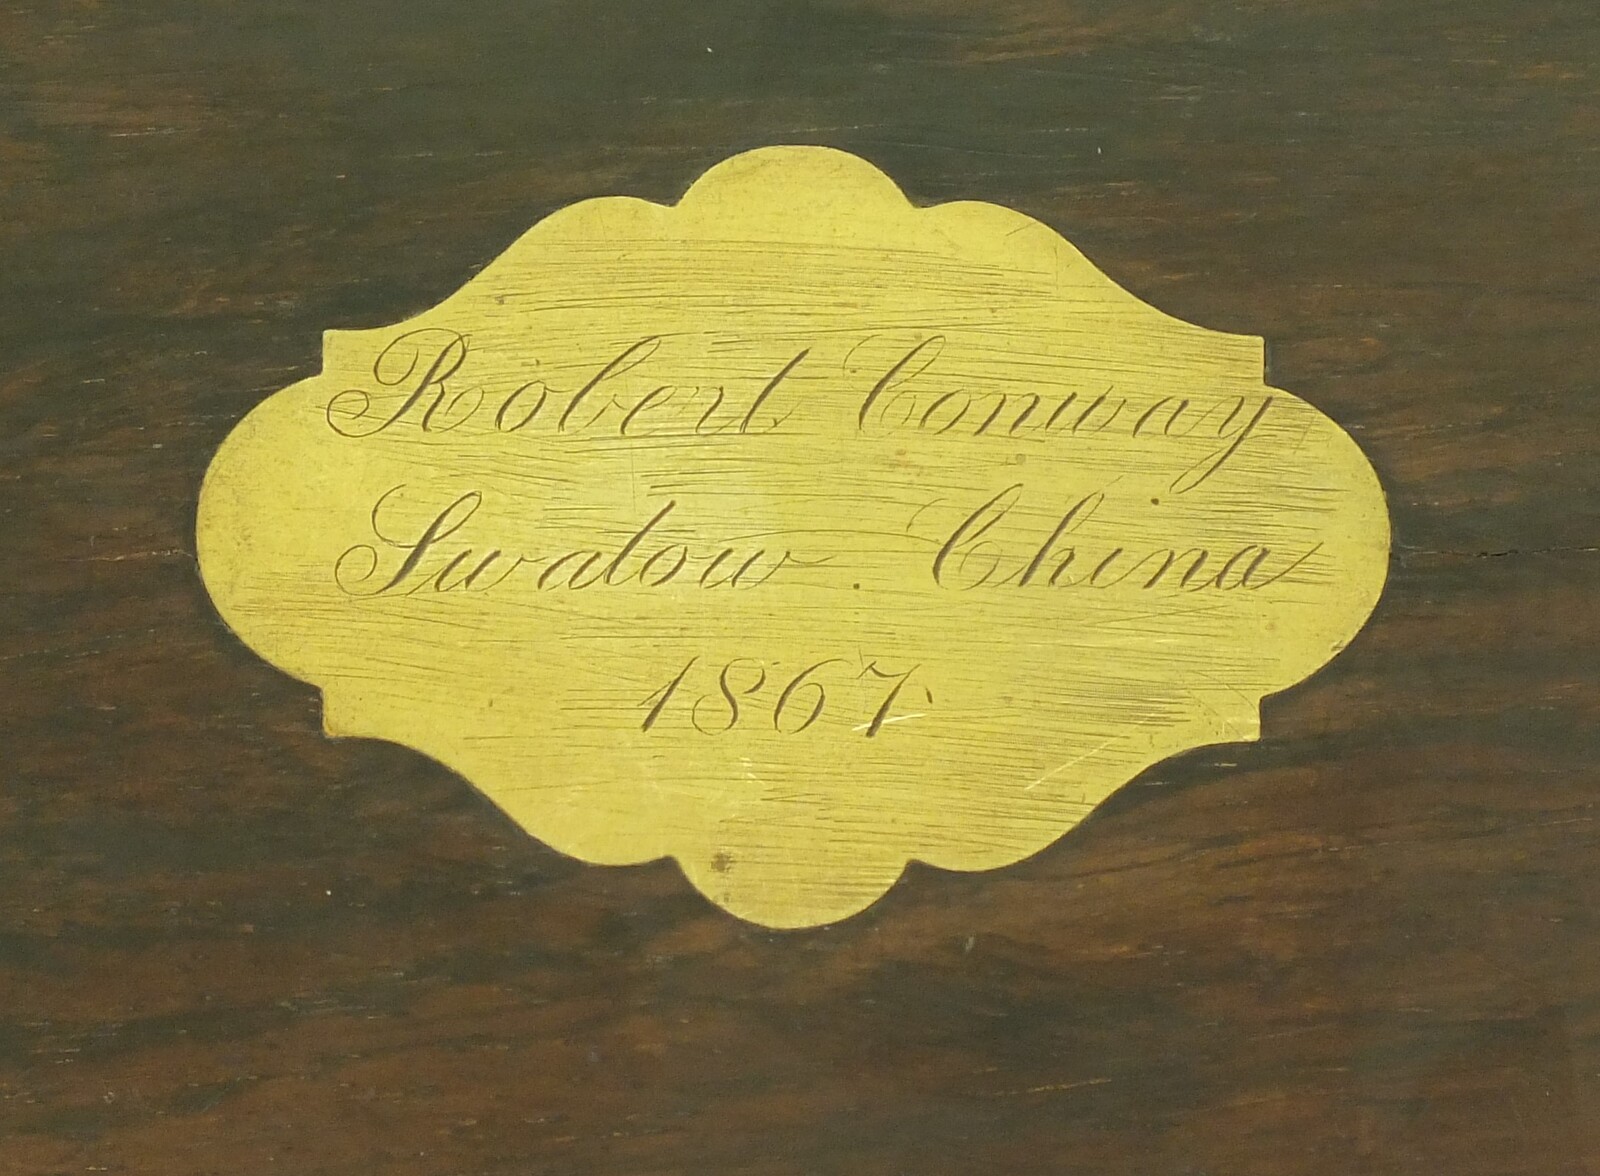 Robert Conway
Swatow . China
1867